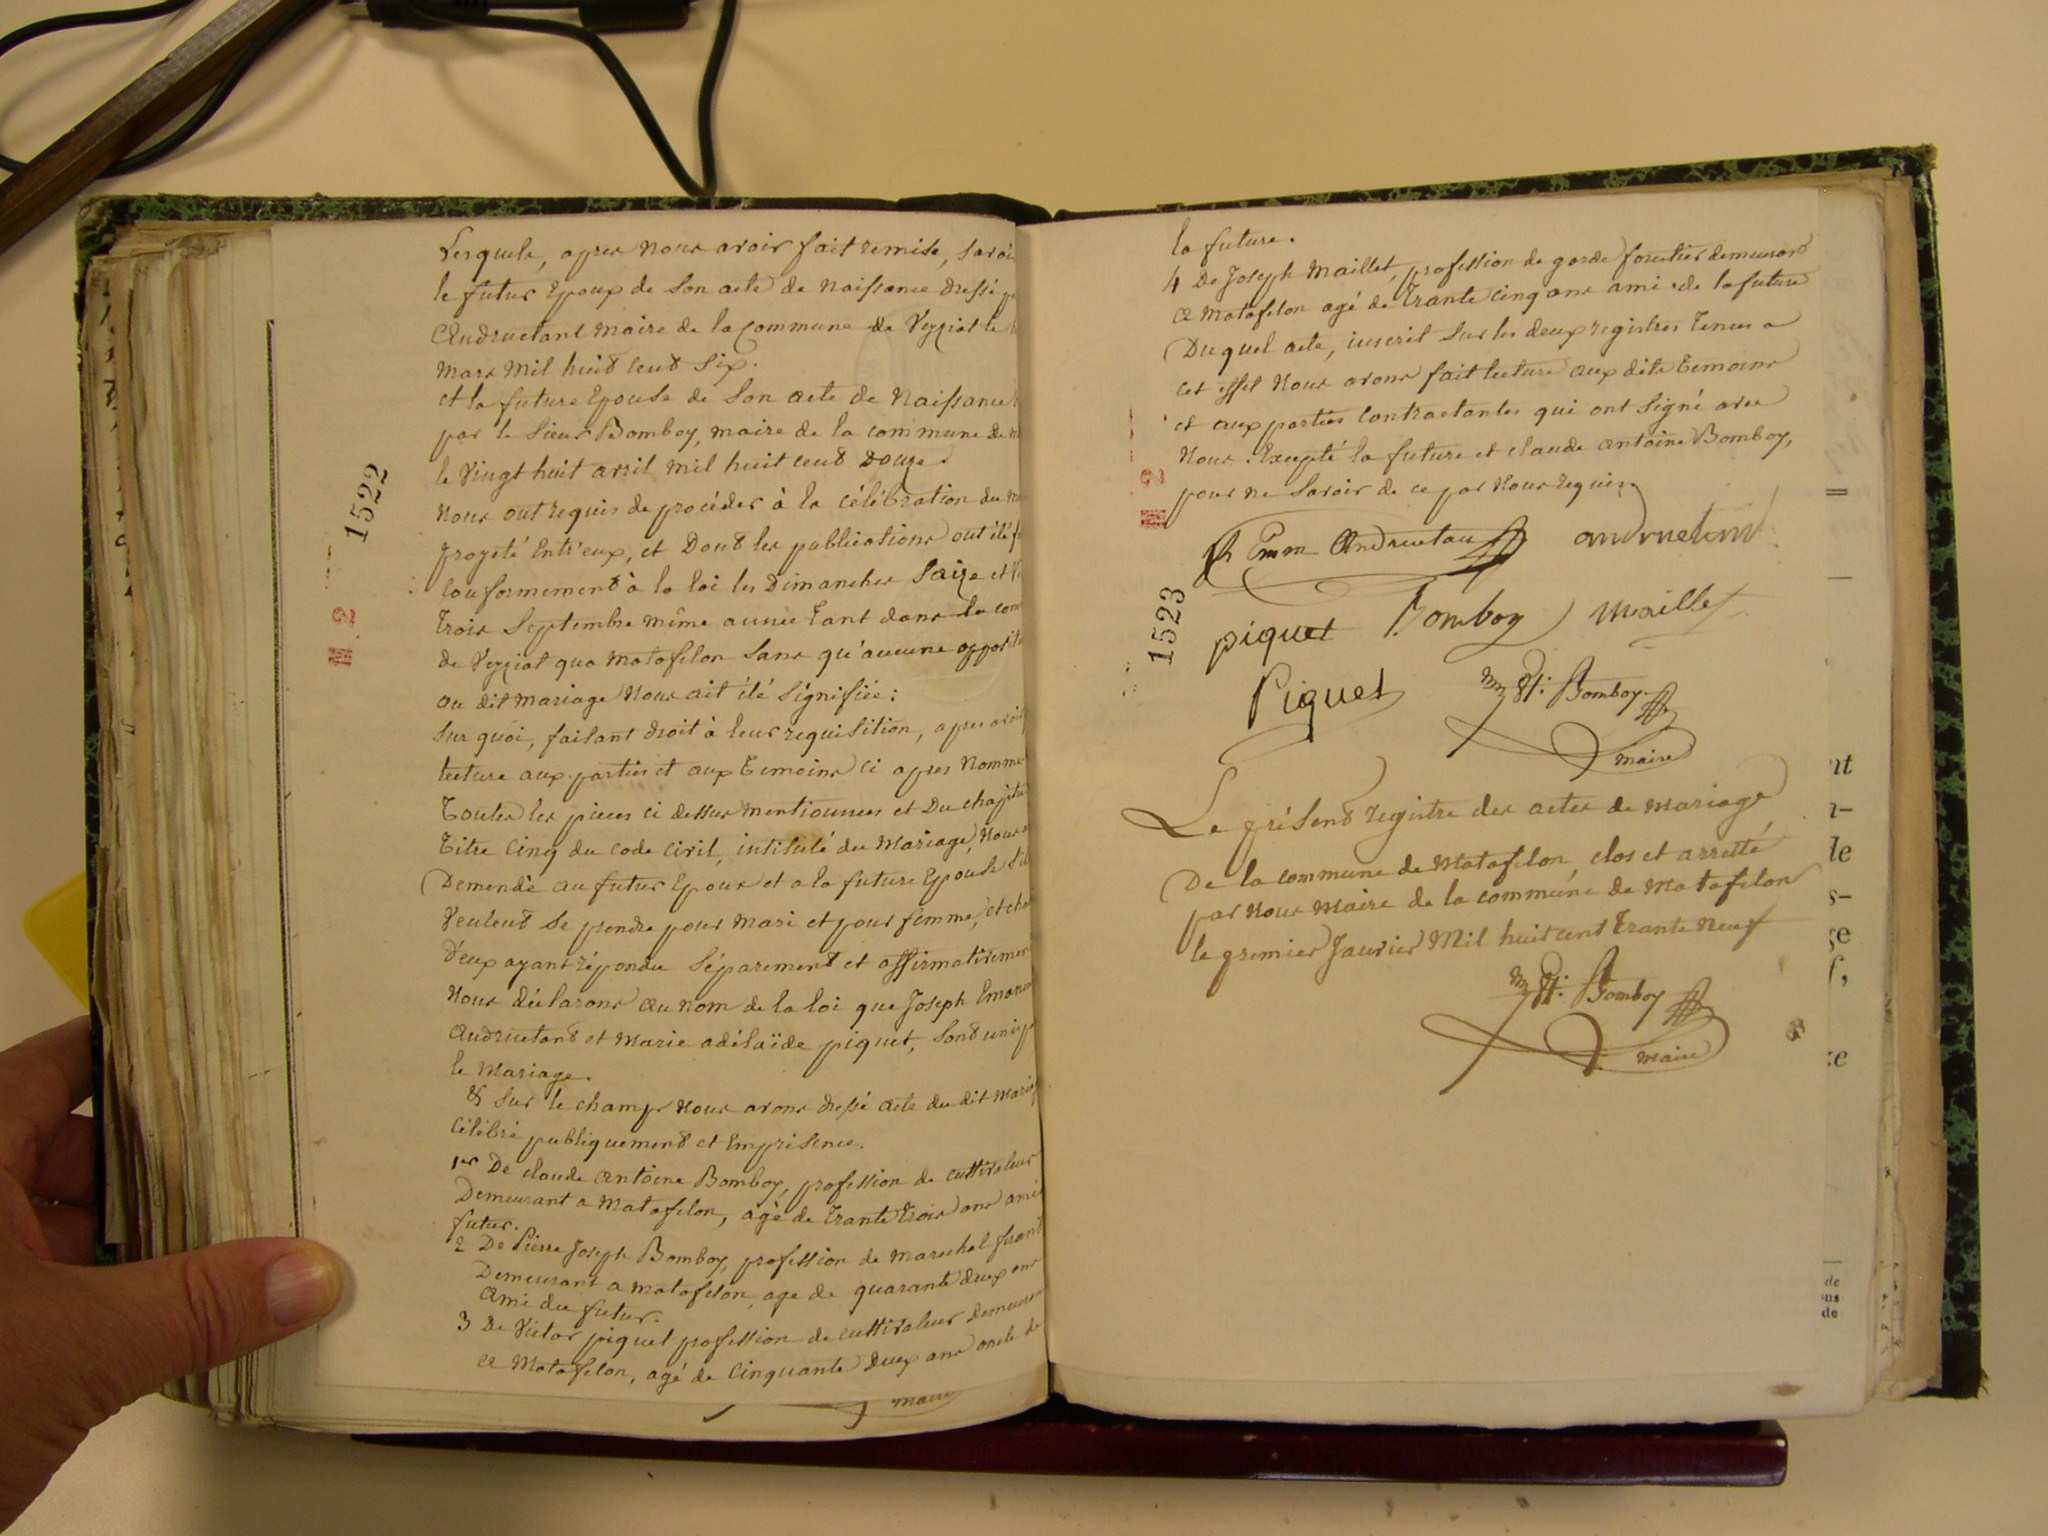 Lesquels, apres Nous avoir fait remise, Savoir
le futur Epoux de Son acte de Naissance dressé
Andruetant maire de la Commune de Veyziat le
Mars Mil huit cent Six.
et la future Epouse de Son acte de Naissance
par le Sieur Bomboy, maire de la commune de
le Vingt huit avril mil huit cent Douze.
Nous ont requis de procéder à la célébration du
projeté Entr'eux, et Dont les publications ont été
conformement à la loi les Dimanches Saize et
trois Septembre même année tant dans la com
de Veyziat que Matafelon Sans qu'aucune opposit
au dit mariage Nous ait été Signifiée:
Sur quoi, faisant droit à leur requisition, apres avoir
lecture aux parties et aux temoins ci apres Nomme
Toutes les pieces ci dessus mentionnees et Du chapitre
Titre Cinq du code civil, intitulé du Mariage, Nous
Demendé au futur Epoux et a la future Epouse S'il
Veulent Se prendre pour mari et pour femme, et cha
D'eux ayant répondu Séparement et affirmativemen
Nous déclarons au nom de la loi que Joseph Emanu
Andruetant et Marie adélaïde piquet, Sont unis p
le Mariage.
& Sur le champ Nous avons dressé acte du dit Mariag
Célébré publiquement et Emprisence.
1er De claude antoine Bomboy, profession de cultivateur
Demeurant a Matafelon, agé de Trante trois ans ami
futur.
2 De Pierre Joseph Bomboy, profession de marechal
Demeurant a matafelon, age de quarante deux ans
Ami du futur.
3 De Victor piquet profession de cultivateur demeuran
a Matafelon, agé de Cinquante Deux ans oncle de
maire
1522
la future.
4 De Joseph Maillet, profession de garde forestier demeurant
a Matafelon agé de Trante Cinq ans ami de la future
Duquel acte, inscrit Sur les deux registres tenus a
cet effet Nous avons fait lecture aux dits temoins
et aux parties Contractantes qui ont Signé avec
Nous. Excepté la future et claude antoine Bomboy,
pour ne Savoir de ce par Nous requis.
Emm Andruetan andruetant
piquet Bomboy Maillet
Piquet Bomboy
maire
1523
Le présent registre des actes de Mariage
De la commune de Matafelon, clos et arretté
par Nous Maire de la commune de Matafelon
le premier Janvier Mil huit cent Trante Neuf
Bomboy
maire
nt
n-
de
s-
ge
f,
de
ons
de